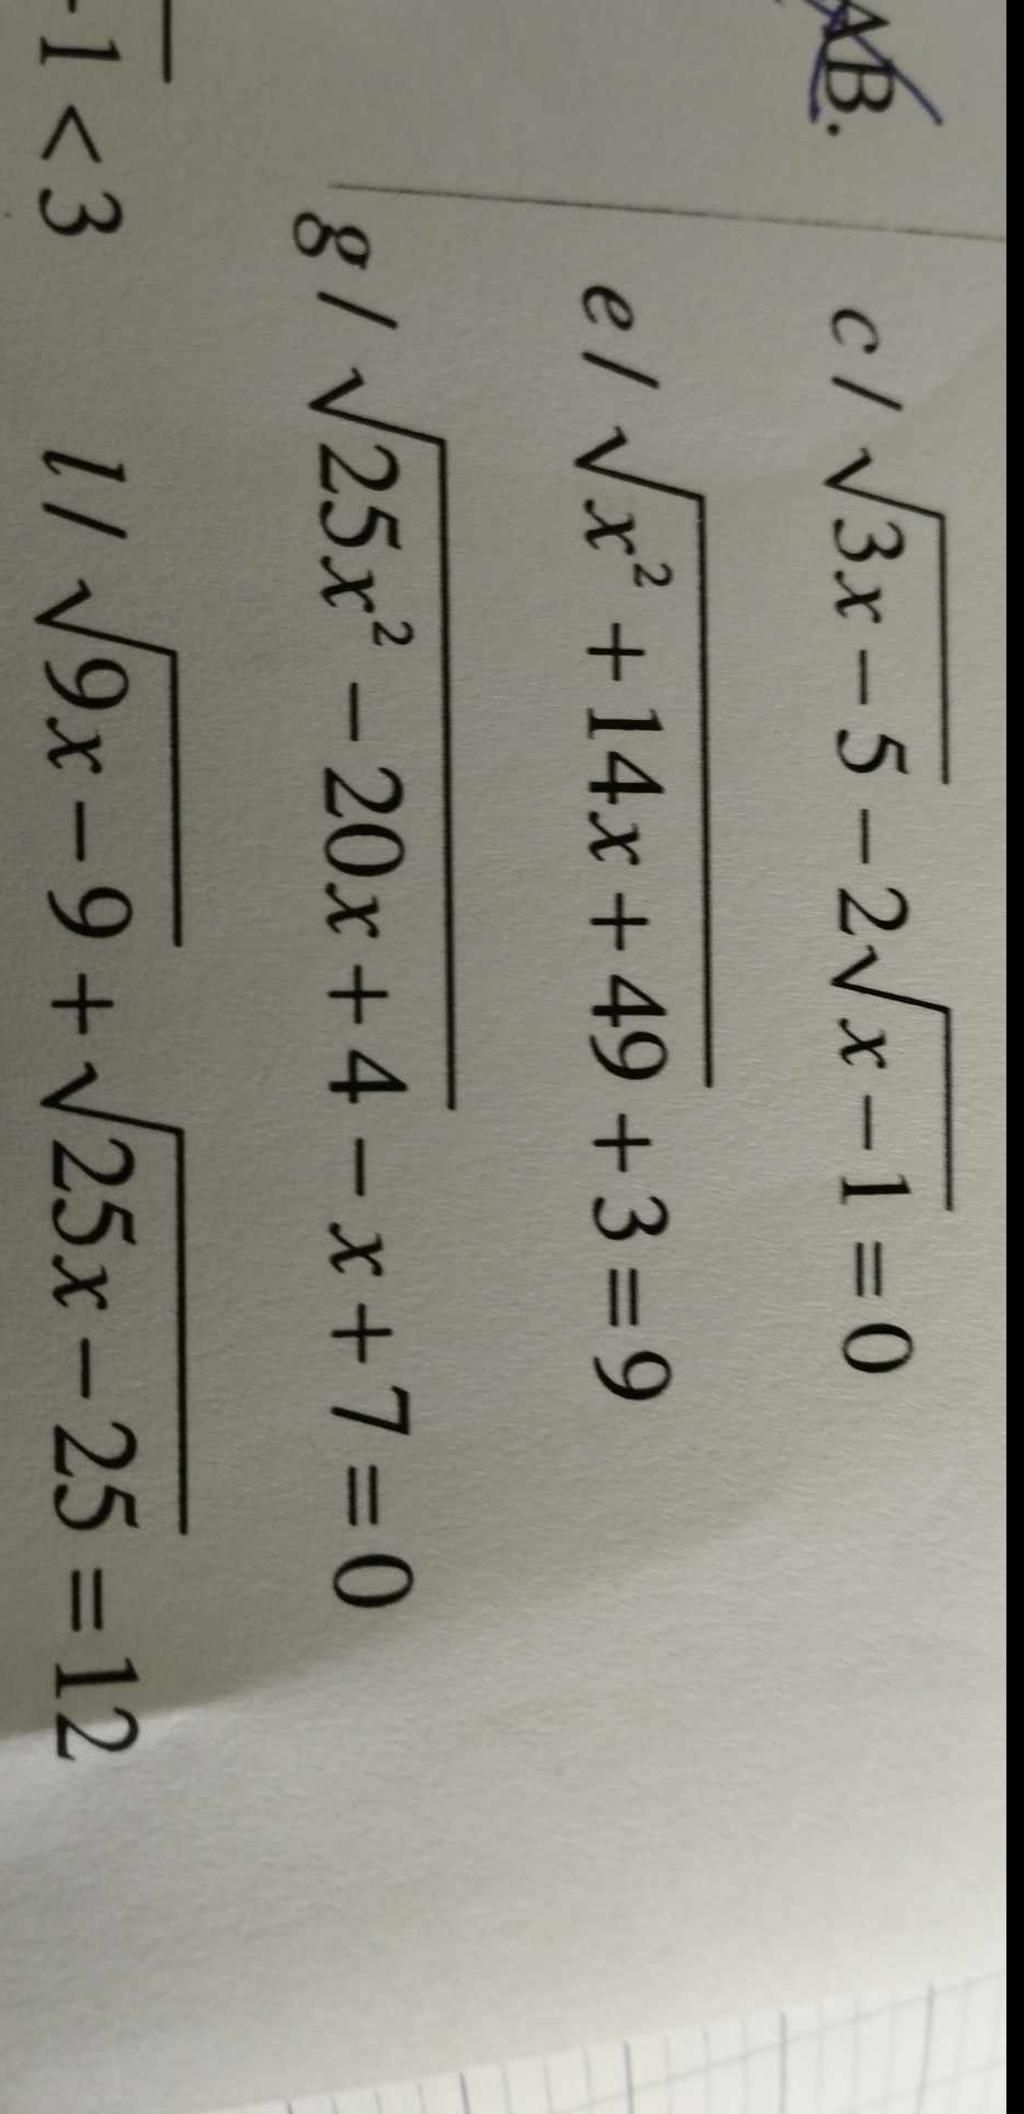 AB.
c / √3x − 5 − 2√x − 1 = 0
e / √x² + 14x + 49 + 3 = 9
g / √25x² − 20x + 4 − x + 7 = 0
-1 < 3
l / √9x − 9 + √25x − 25 = 12